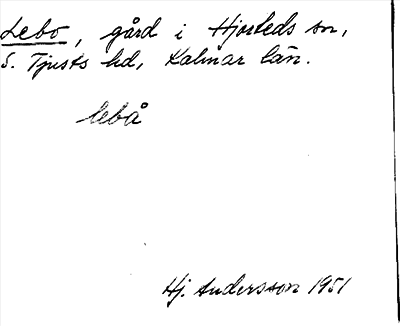 Lebo, gård i Hjorteds sn,
S. Tjusts hd, Kalmar län.
lebå
Hj. Andersson 1951